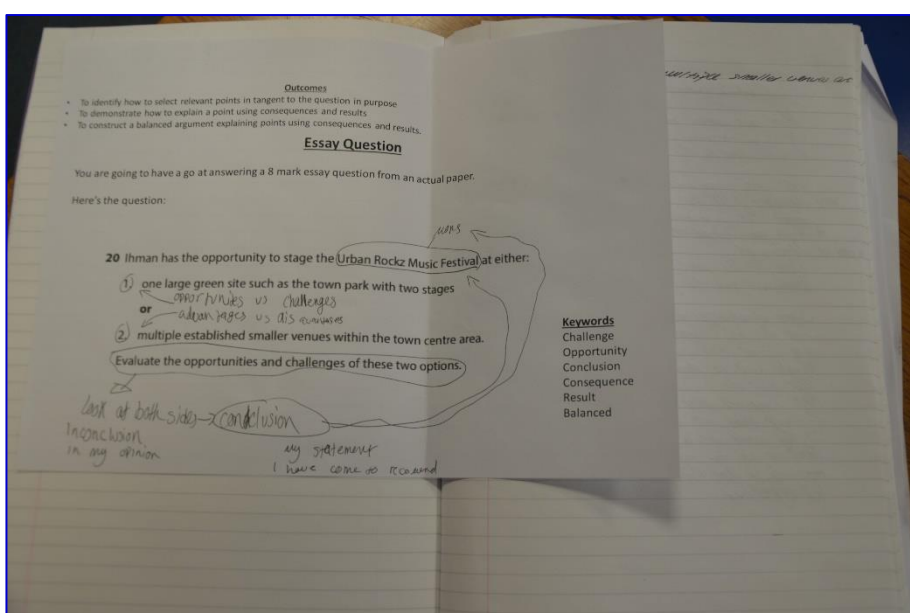 smaller venues
Outcomes
• To identify how to select relevant points in tangent to the question in purpose
• To demonstrate how to explain a point using consequences and results
• To construct a balanced argument explaining points using consequences and results.
Essay Question
You are going to have a go at answering a 8 mark essay question from an actual paper.
Here's the question:
20 Ihman has the opportunity to stage the Urban Rockz Music Festival at either:
1) one large green site such as the town park with two stages
opportunites vs challenges
or
advantages vs dis
2. multiple established smaller venues within the town centre area.
Evaluate the opportunities and challenges of these two options.
Keywords
Challenge
Opportunity
Conclusion
Consequence
Result
Balanced
look at both sides → conclusion
In conclusion
in my opinion
my statement
I have come to